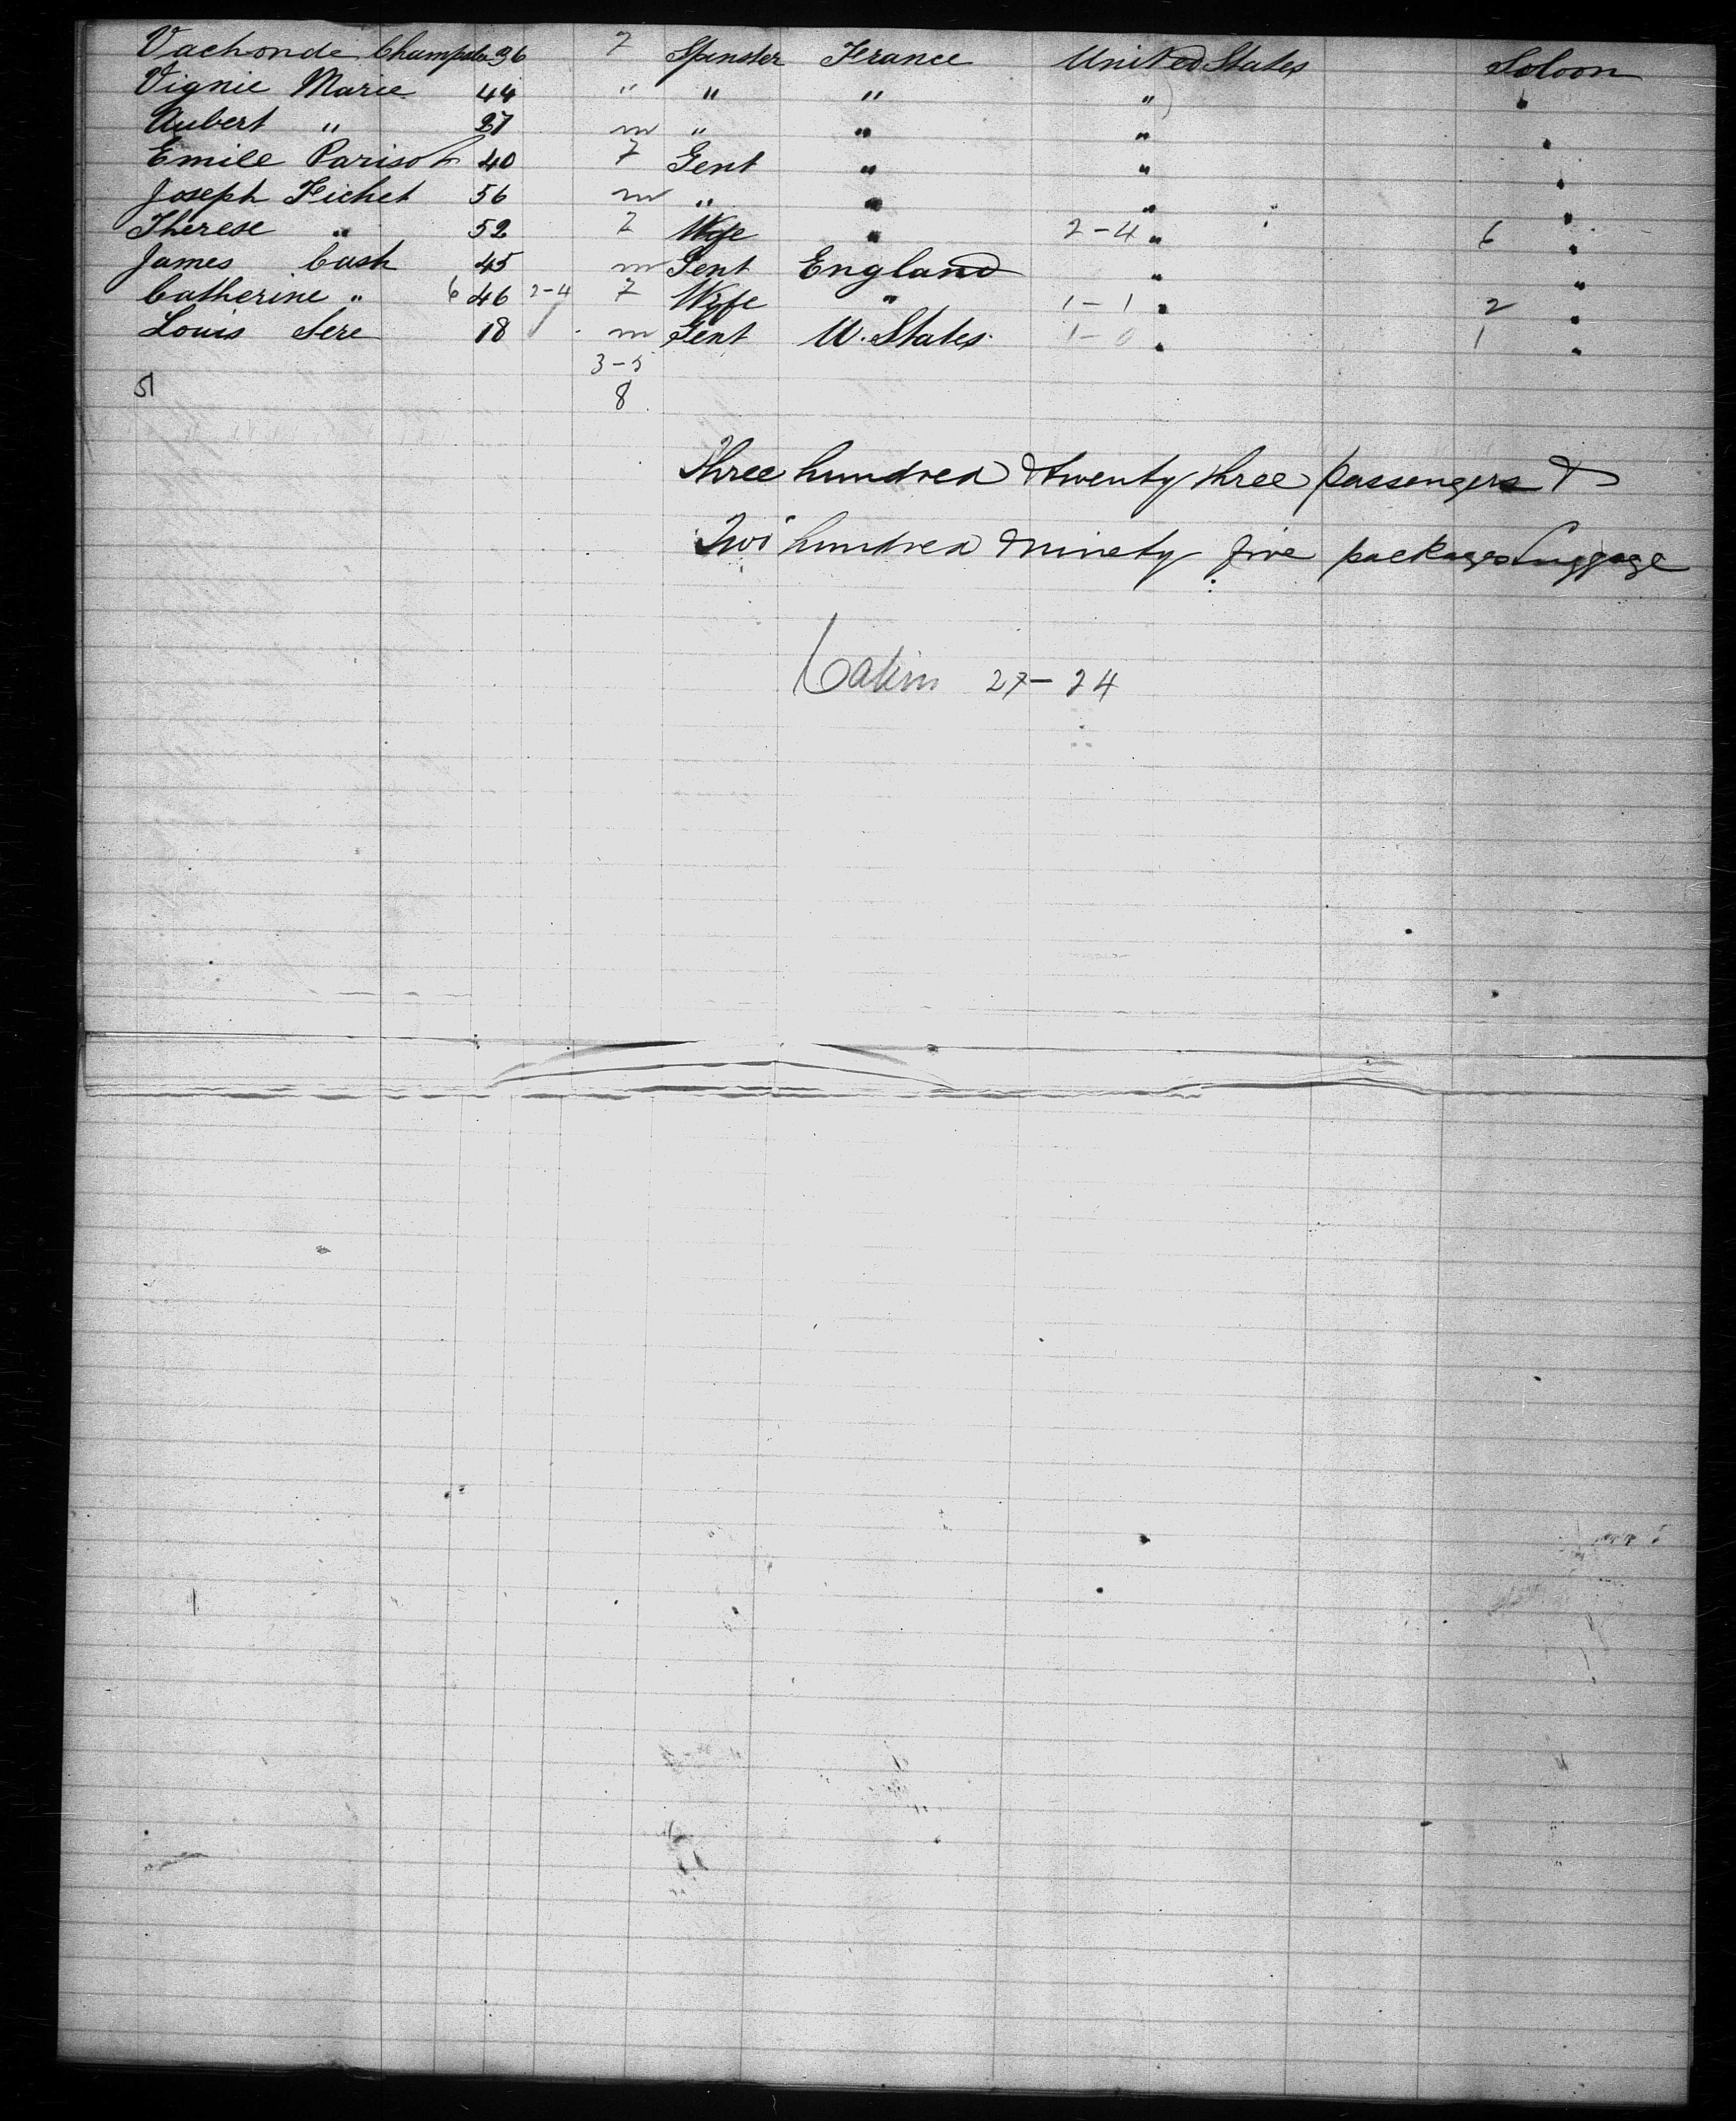 Vachonde Champda 36 7 Spinster France United States Saloon
Vignie Marie 44 " " " " "
Aubert " 27 m " " " "
Emile Parisot 40 7 Gent " " "
Joseph Fichet 56 m " " " "
Therese " 52 7 Wife " 2-4 " 6 "
James Cash 45 m Gent England " "
Catherine " 6 46 2-4 7 Wife " 1-1 " 2 "
Louis Sere 18 m Gent U. States 1-0 " 1 "
3-5
51 8
Three hundred & twenty three passengers &
Two hundred & ninety five packages Luggage
Cabin 27-24